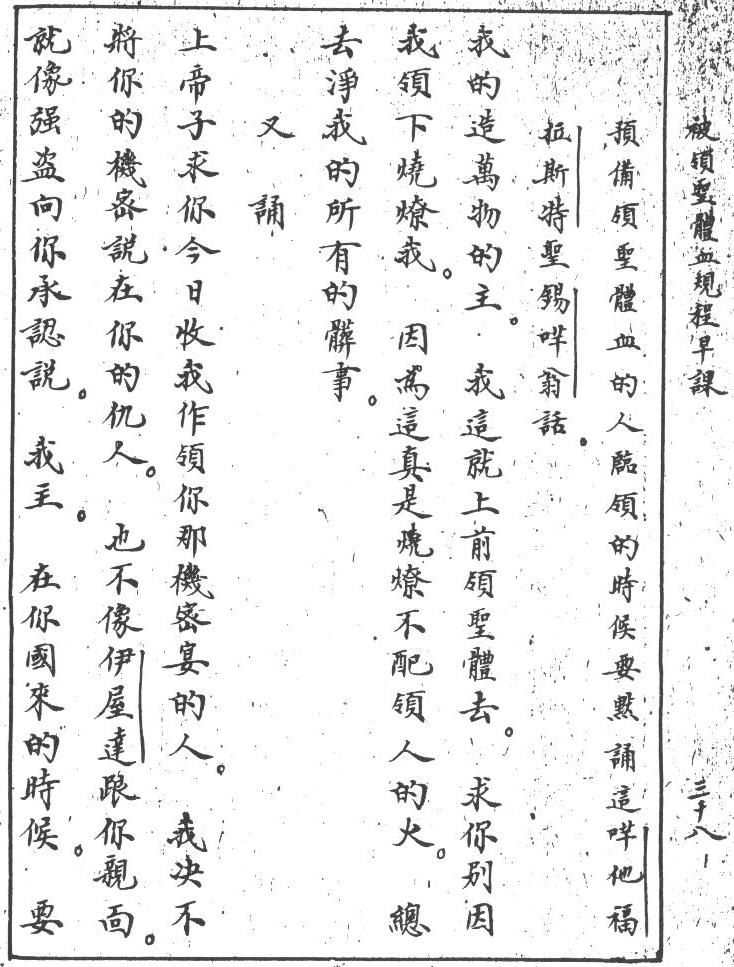 被領聖體血規程早課
三十八
預備領聖體血的人臨領的時候要默誦這哶他福
拉斯特聖錫哶翁話。
我的造萬物的主。我這就上前領聖體去。求你別因
我領下燒燎我。因為這真是燒燎不配領人的火。總
去淨我的所有的髒事。
又誦
上帝子求你今日收我作領你那機密宴的人。我决不
將你的機密説在你的仇人。也不像伊屋達跟你親面。
就像强盗向你承認説。我主。在你國來的時候。要